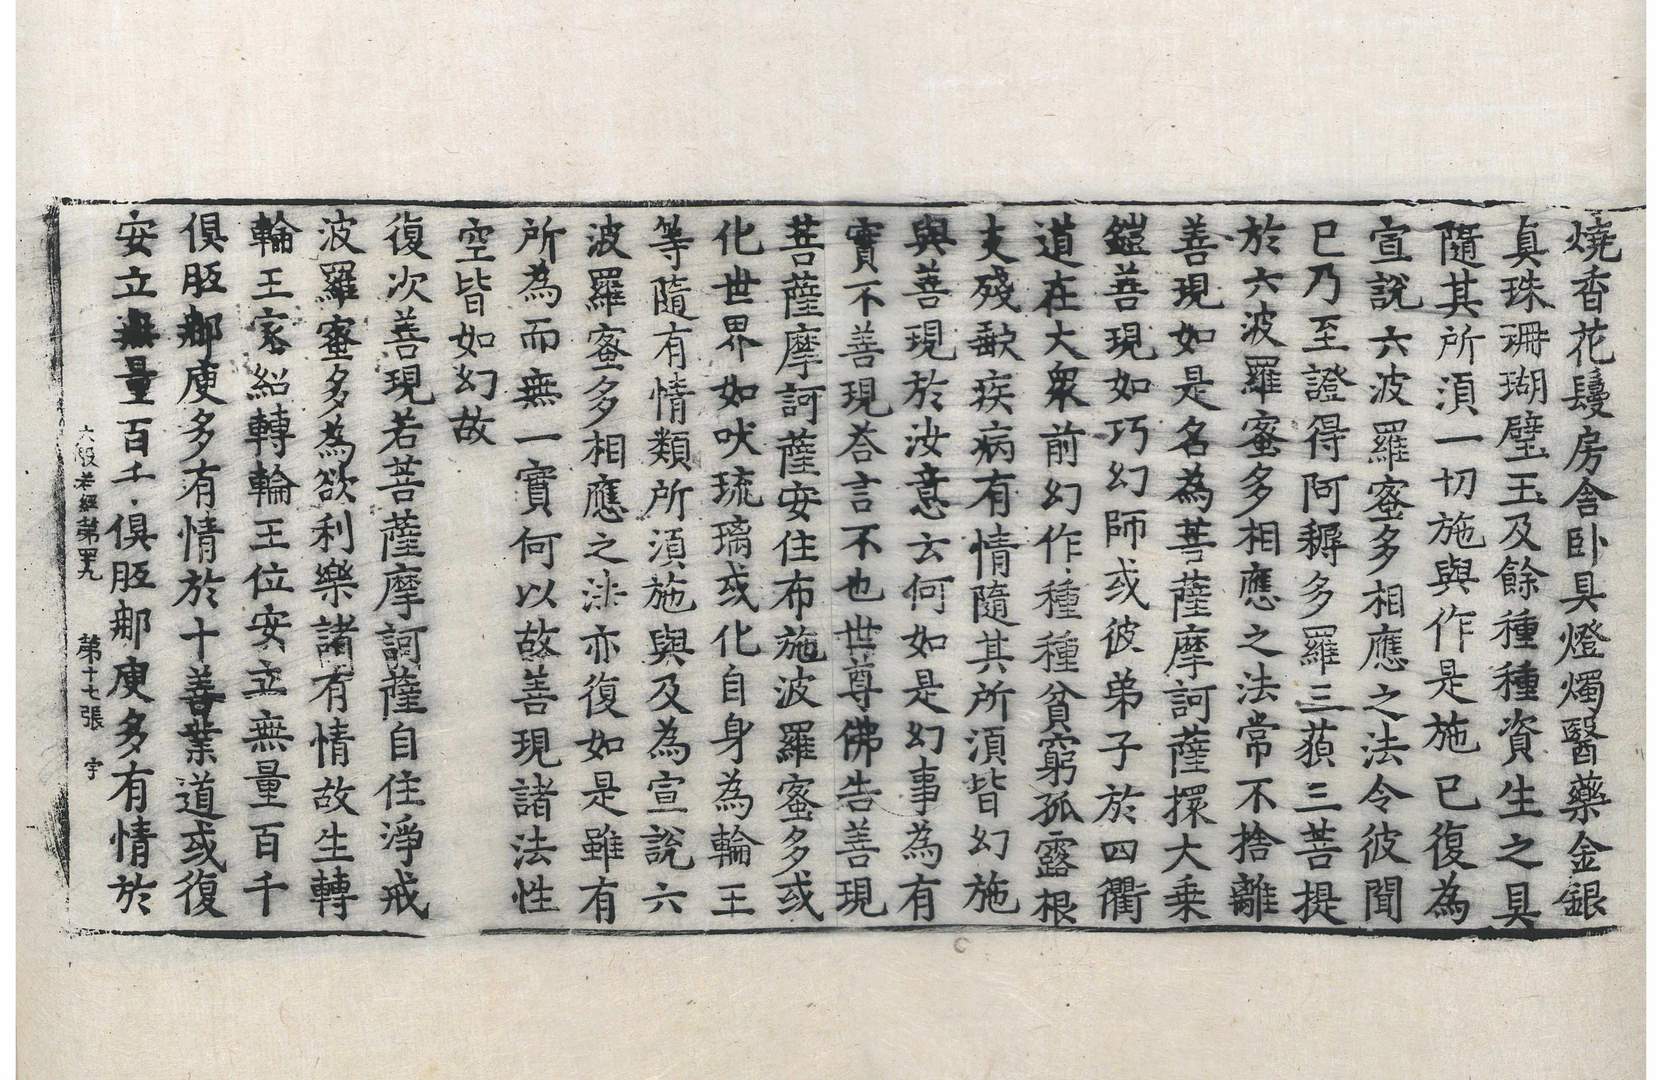 燒香花鬘房舍臥具燈燭醫藥金銀
真珠珊瑚璧玉及餘種種資生之具
隨其所須一切施與作是施已復為
宣說六波羅蜜多相應之法令彼聞
已乃至證得阿耨多羅三藐三菩提
於六波羅蜜多相應之法常不捨離
善現如是名為菩薩摩訶薩擐大乘
鎧善現如巧幻師或彼弟子於四衢
道在大衆前幻作種種貧窮孤露根
支殘歇疾病有情隨其所須皆幻施
與善現於汝意云何如是幻事為有
實不善現荅言不也世尊佛告善現
菩薩摩訶薩安住布施波羅蜜多或
化世界如吠琉璃或化自身為輪王
等隨有情類所須施與及為宣說六
波羅蜜多相應之法亦復如是雖有
所為而無一實何以故善現諸法性
空皆如幻故
復次善現若菩薩摩訶薩自住淨戒
波羅蜜多為欲利樂諸有情故生轉
輪王家紹轉輪王位安立無量百千
俱胝那庾多有情於十善業道或復
安立無量百千俱胝那庾多有情於
大般若經第四十九 第十七張 宇